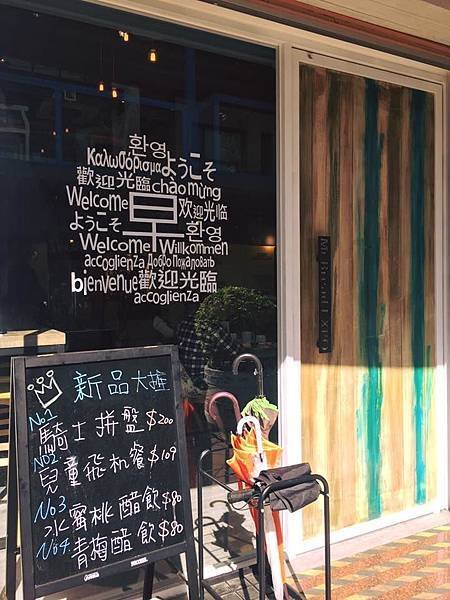 환영
Καλωσόρισμα ようこそ
歡迎光臨 chào mừng
Welcome 早 欢迎光临
ようこそ 환영
Welcome Willkommen
accoglienza Добро Пожаловать
bienvenue 歡迎光臨
accoglienza
新品大推
No.1 騎士拼盤 $200
NO2. 兒童飛机餐 $109
No3 水蜜桃醋飲 $90
No4. 青梅醋飲 $80